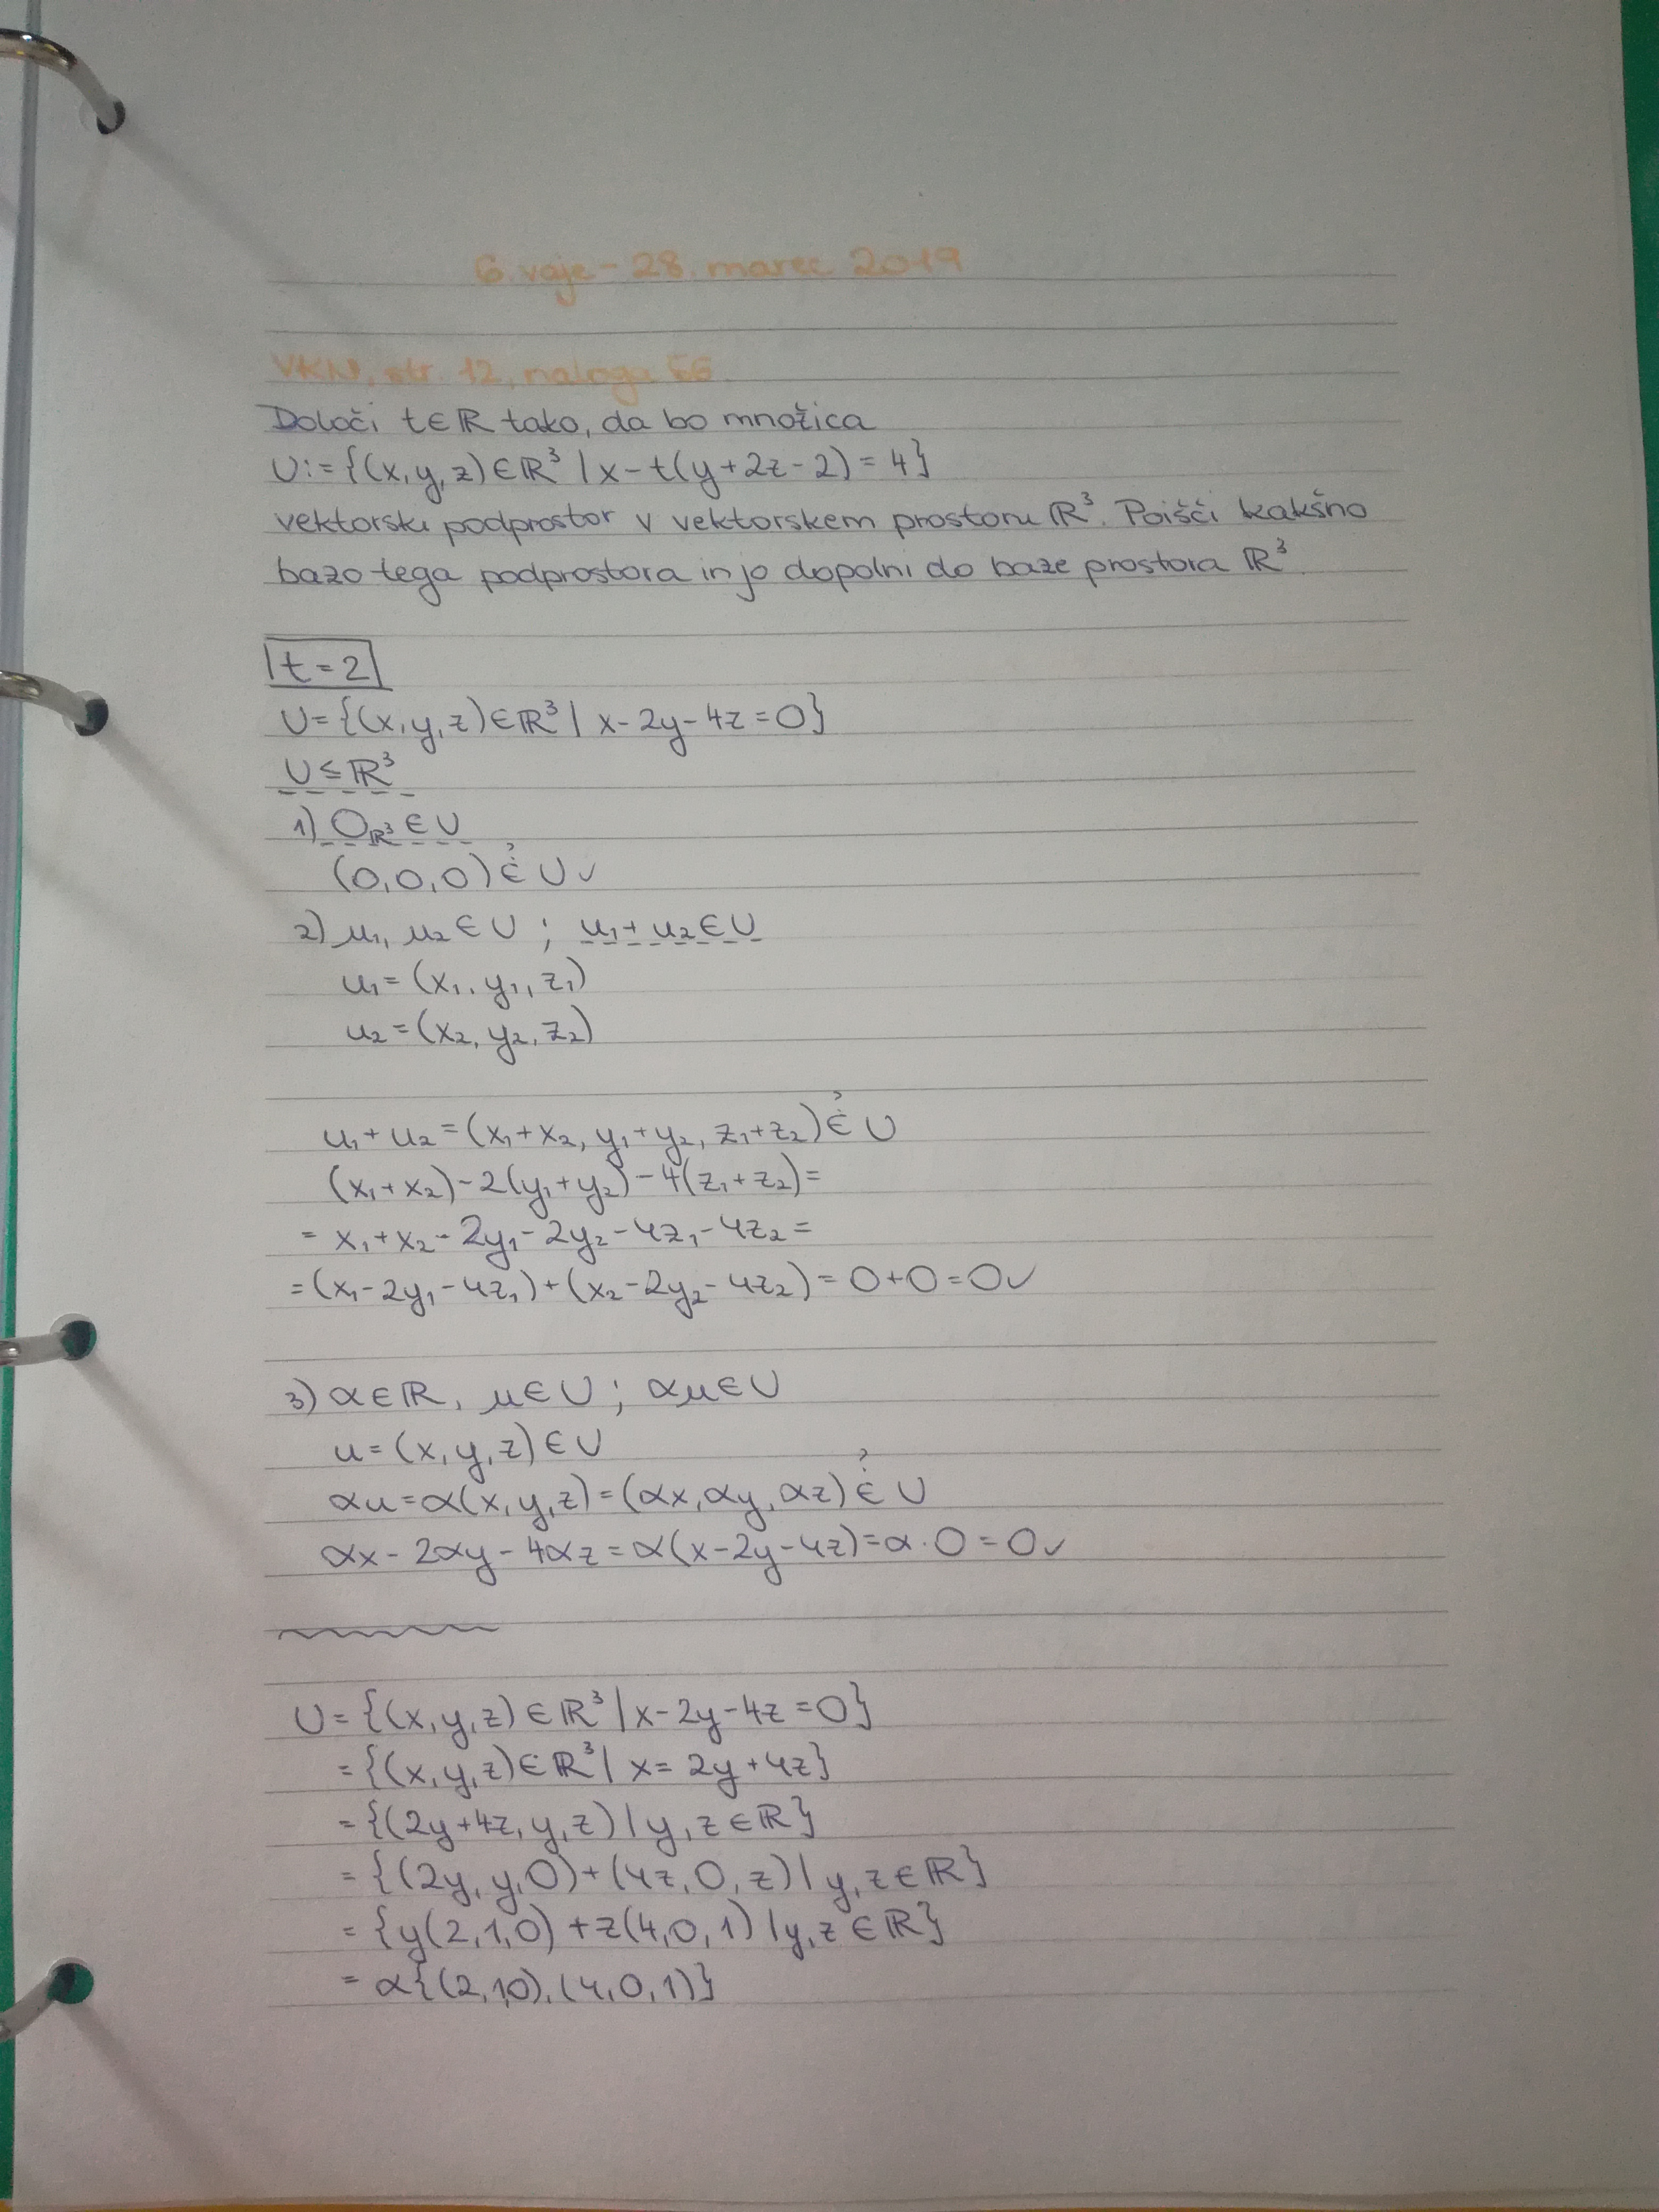 6. vaje - 28. marec 2019
VKN, str. 12, naloga 56
Določi t∈ℝ tako, da bo množica
U:={(x,y,z)∈ℝ³ | x-t(y+2z-2)=4}
vektorski podprostor v vektorskem prostoru ℝ³. Poišči kakšno
bazo tega podprostora in jo dopolni do baze prostora ℝ³.
t=2
U={(x,y,z)∈ℝ³ | x-2y-4z=0}
U≤ℝ³
1) 0_ℝ³ ∈ U
(0,0,0) ∈? U ✓
2) u₁, u₂ ∈ U ; u₁+u₂∈U
u₁=(x₁,y₁,z₁)
u₂=(x₂,y₂,z₂)
u₁+u₂=(x₁+x₂, y₁+y₂, z₁+z₂) ∈? U
(x₁+x₂)-2(y₁+y₂)-4(z₁+z₂)=
= x₁+x₂-2y₁-2y₂-4z₁-4z₂=
=(x₁-2y₁-4z₁)+(x₂-2y₂-4z₂)=0+0=0✓
3) α∈ℝ, u∈U ; αu∈U
u=(x,y,z)∈U
αu=α(x,y,z)=(αx,αy,αz) ∈? U
αx-2αy-4αz=α(x-2y-4z)=α·0=0✓
U={(x,y,z)∈ℝ³ | x-2y-4z=0}
={(x,y,z)∈ℝ³ | x=2y+4z}
={(2y+4z,y,z) | y,z∈ℝ}
={(2y,y,0)+(4z,0,z) | y,z∈ℝ}
={y(2,1,0)+z(4,0,1) | y,z∈ℝ}
=α{(2,1,0),(4,0,1)}